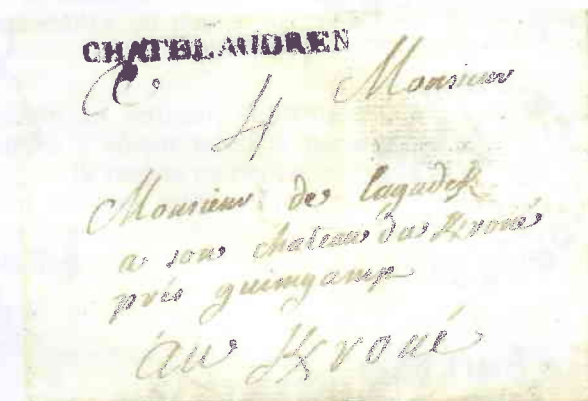 CHATELAUDREN
Monsieur
4
Monsieur de
a son chateau du Kroué
prés guimgamp
au Kroué